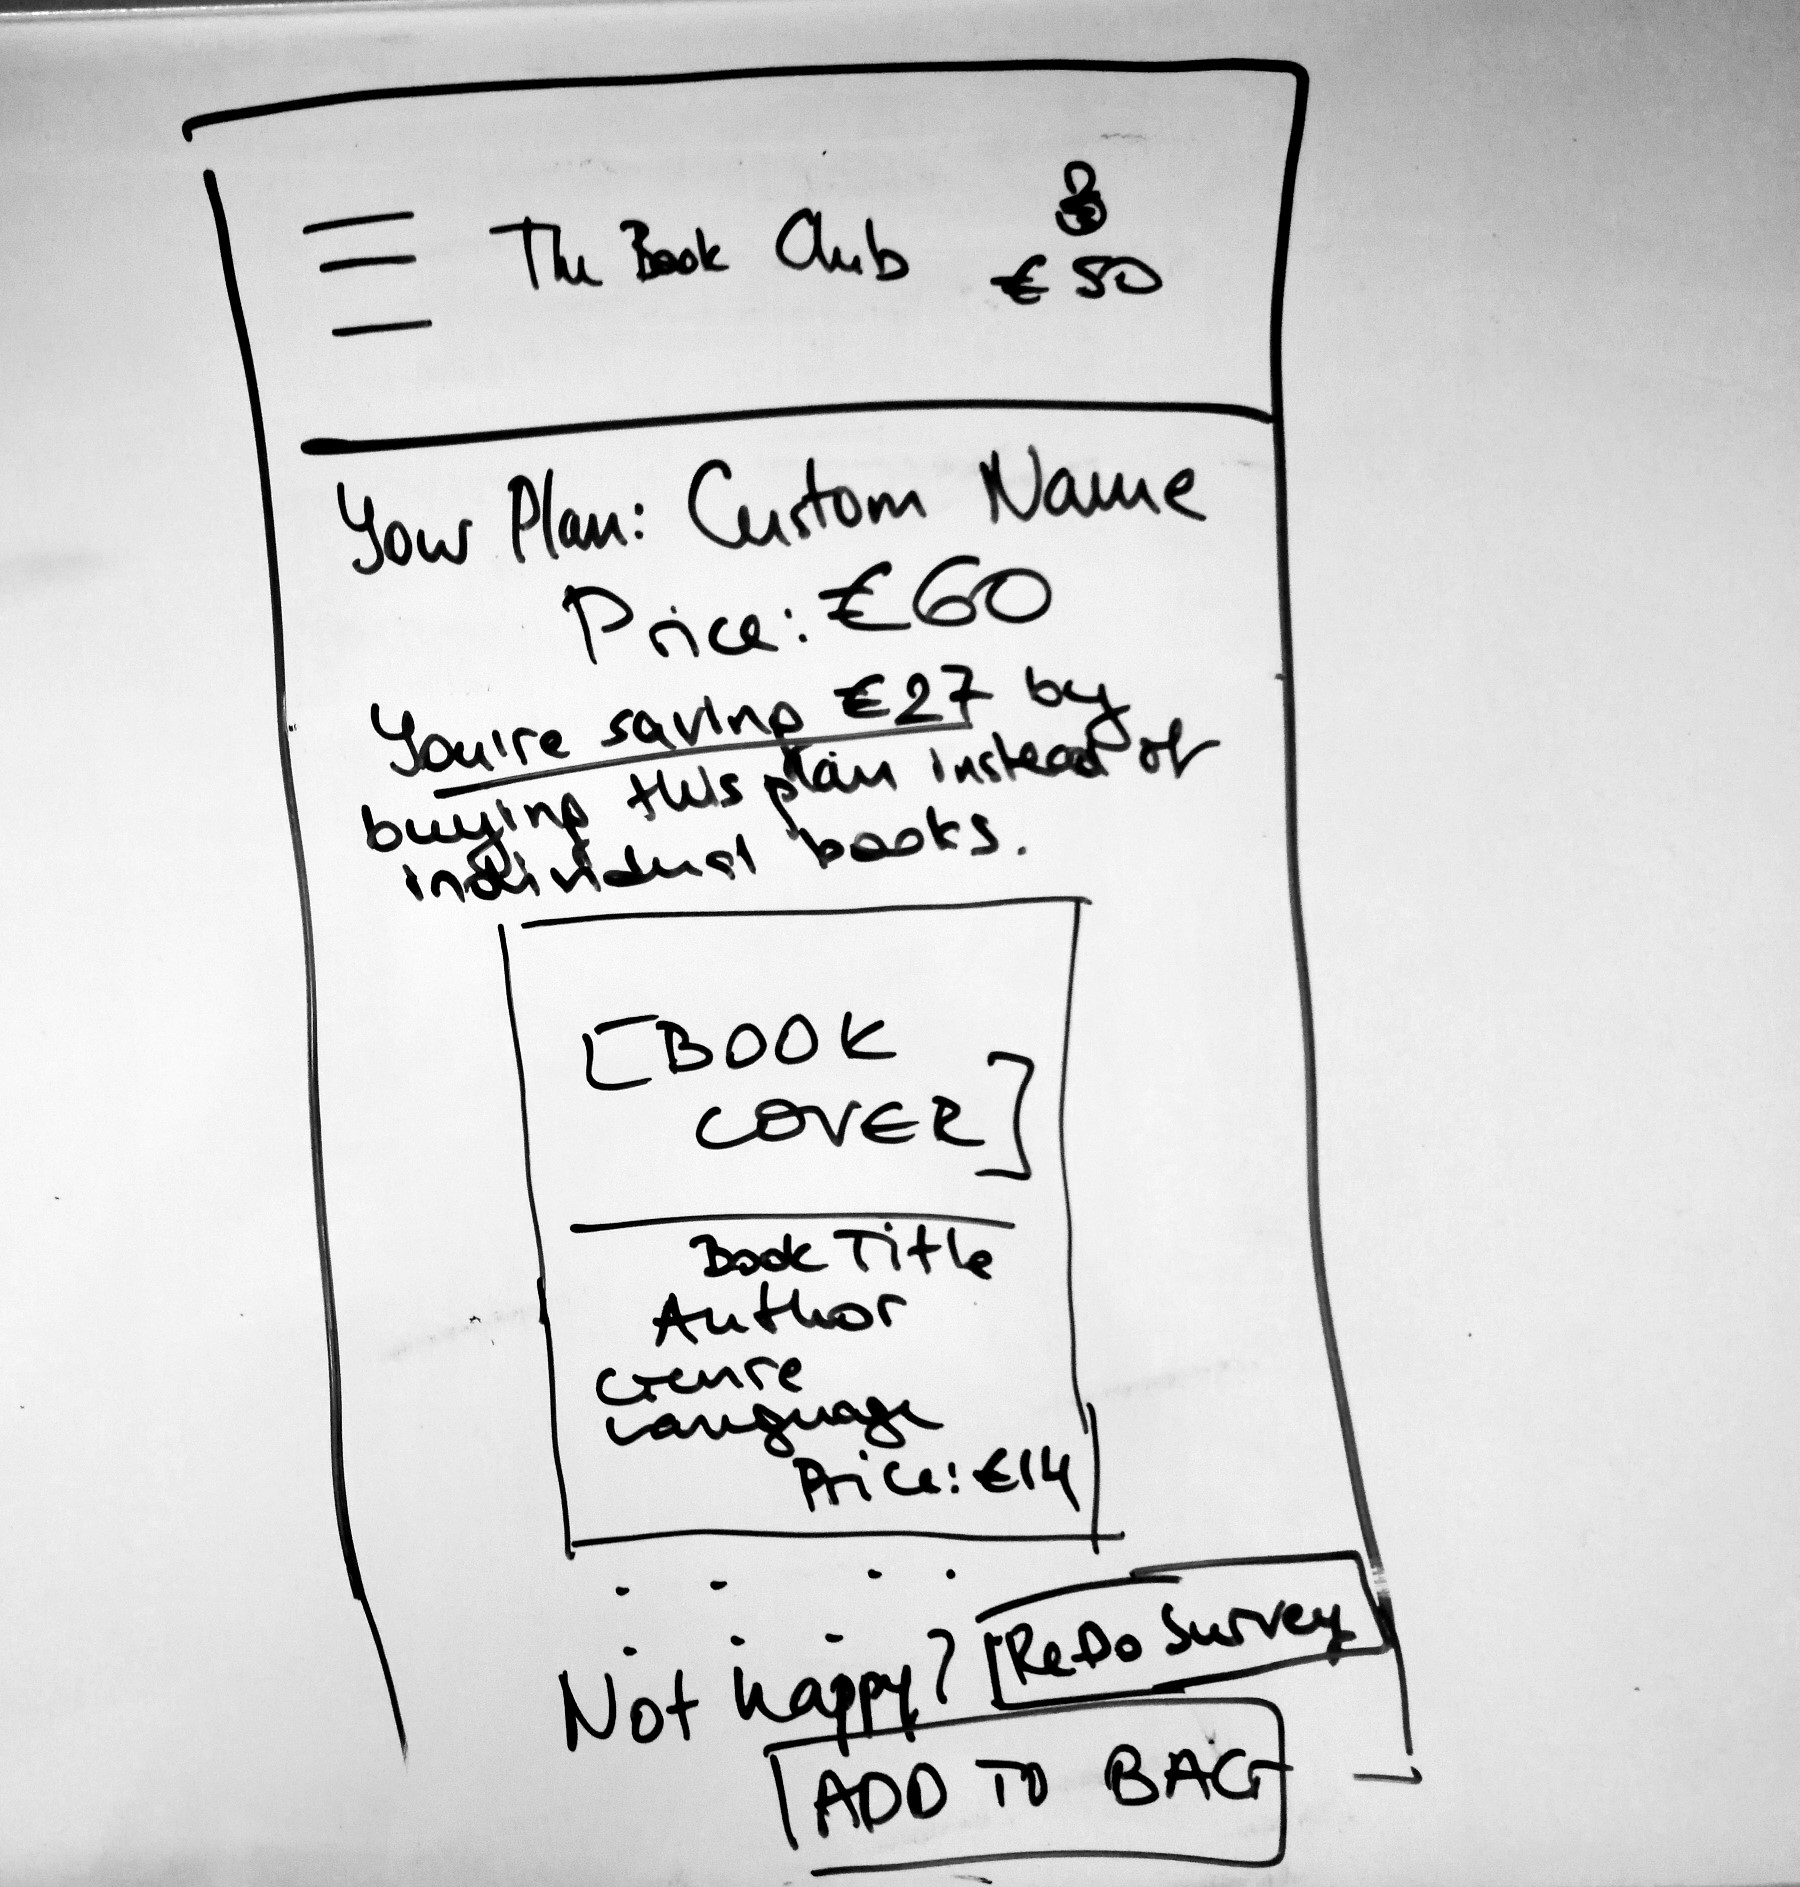 The Book Club
€50
Your Plan: Custom Name
Price: €60
You're saving €27 by
buying this plan instead of
individual books.
[BOOK
COVER]
Book Title
Author
Genre
Language
Price: €14
Not happy? ReDo Survey
ADD TO BAG